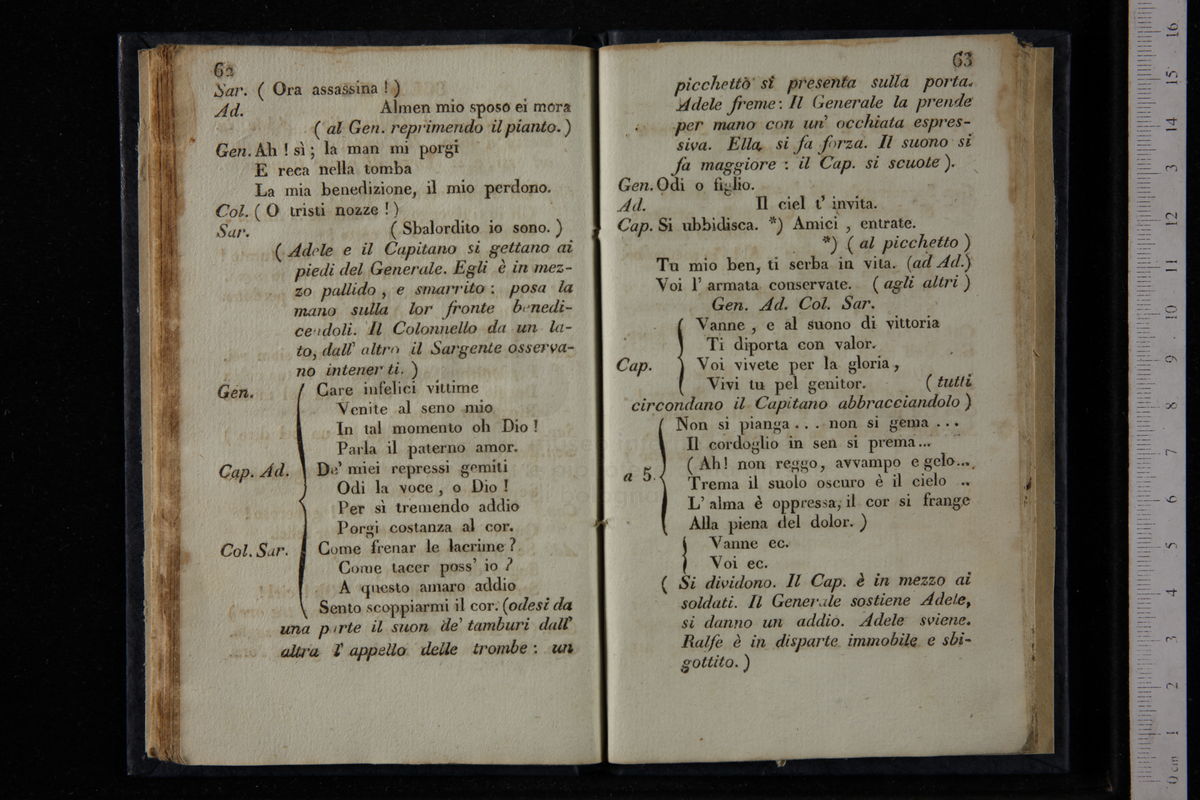 62
Sar. ( Ora assassina ! )
Ad. Almen mio sposo ei mora
( al Gen. reprimendo il pianto. )
Gen. Ah ! sì ; la man mi porgi
E reca nella tomba
La mia benedizione, il mio perdono.
Col. ( O tristi nozze ! )
Sar. ( Sbalordito io sono. )
( Adele e il Capitano si gettano ai
piedi del Generale. Egli è in mez-
zo pallido , e smarrito : posa la
mano sulla lor fronte benedi-
cendoli. Il Colonnello da un la-
to, dall' altro il Sargente osserva-
no inteneriti. )
Gen. Care infelici vittime
Venite al seno mio
In tal momento oh Dio !
Parla il paterno amor.
Cap. Ad. De' miei repressi gemiti
Odi la voce , o Dio !
Per sì tremendo addio
Porgi costanza al cor.
Col. Sar. Come frenar le lacrime ?
Come tacer poss' io ?
A questo amaro addio
Sento scoppiarmi il cor. (odesi da
una parte il suon de' tamburi dall'
altra l' appello delle trombe : un
63
picchetto si presenta sulla porta.
Adele freme : Il Generale la prende
per mano con un' occhiata espres-
siva. Ella si fa forza. Il suono si
fa maggiore : il Cap. si scuote ).
Gen. Odi o figlio.
Ad. Il ciel t' invita.
Cap. Si ubbidisca. *) Amici , entrate.
*) ( al picchetto )
Tu mio ben, ti serba in vita. (ad Ad.)
Voi l' armata conservate. ( agli altri )
Gen. Ad. Col. Sar.
Vanne , e al suono di vittoria
Ti diporta con valor.
Cap. Voi vivete per la gloria ,
Vivi tu pel genitor. ( tutti
circondano il Capitano abbracciandolo )
Non si pianga . . . non si gema . . .
Il cordoglio in sen si prema ...
( Ah! non reggo, avvampo e gelo....
a 5. Trema il suolo oscuro è il cielo ..
L' alma è oppressa, il cor si frange
Alla piena del dolor. )
Vanne ec.
Voi ec.
( Si dividono. Il Cap. è in mezzo ai
soldati. Il Generale sostiene Adele,
si danno un addio. Adele sviene.
Ralfe è in disparte immobile e sbi-
gottito. )
0 cm 1 2 3 4 5 6 7 8 9 10 11 12 13 14 15 16